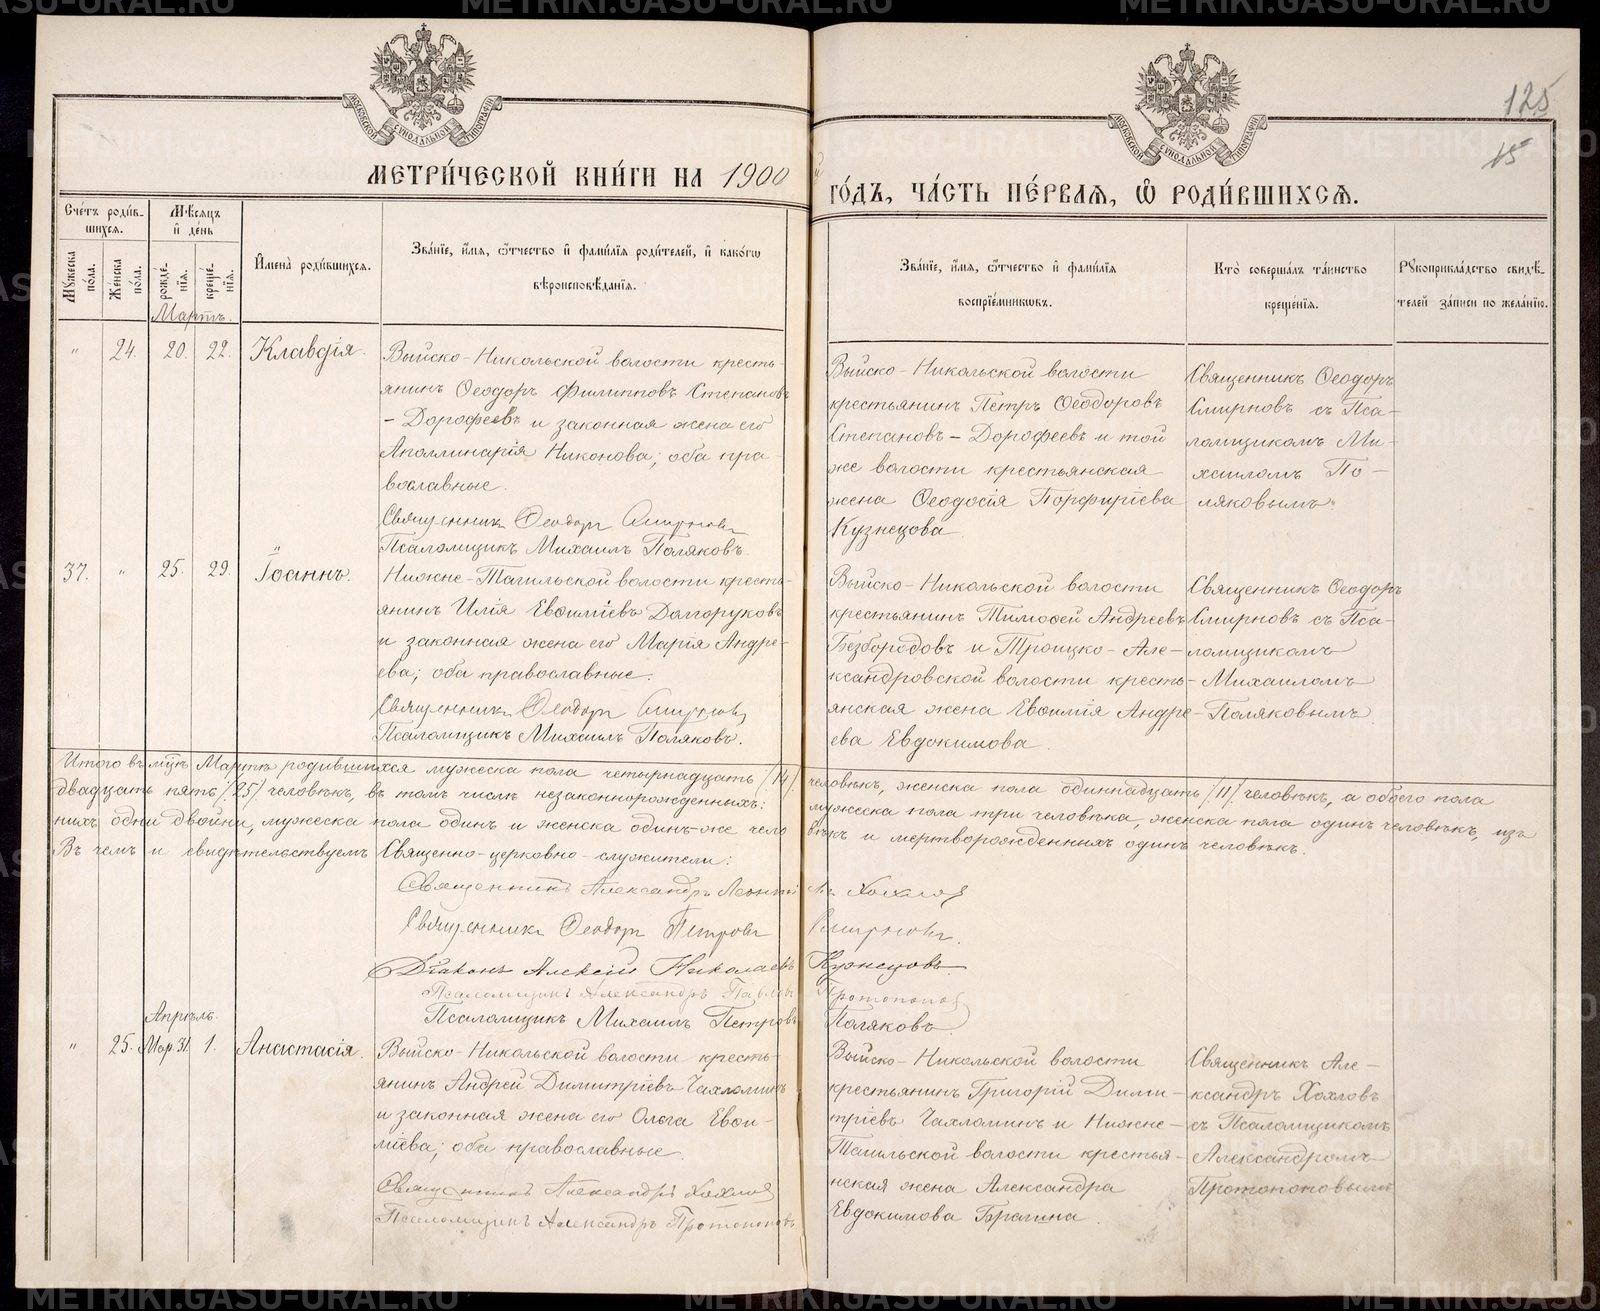 METRIKI.GASU-URAL.RU
МОСКОВСКОЙ СѴНОДАЛЬНОЙ ТИПОГРАФІИ
МОСКОВСКОЙ СѴНОДАЛЬНОЙ ТИПОГРАФІИ
125
15
МЕТРИ́ЧЕСКОЙ КНИ́ГИ НА 1900
ГО́ДЪ, ЧА́СТЬ ПЕ́РВАѦ, Ѽ РОДИ́ВШИХСѦ.
Сче́тъ роди́вшихсѧ.
Мѣ́сѧцъ и҆ де́нь
И҆мена̀ роди́вшихсѧ.
Зва́нїе, и҆́мѧ, ѻ҆́тчество и҆ фами́лїѧ роди́телей, и҆ како́гѡ вѣроисповѣ́данїѧ.
Мꙋ́жеска по́ла.
Же́нска по́ла.
рожде́нїѧ.
креще́нїѧ.
Зва́нїе, и҆́мѧ, ѻ҆́тчество и҆ фами́лїѧ воспрїе́мниковъ.
Кто̀ соверша́лъ та́инство креще́нїѧ.
Рꙋкоприкла́дство свидѣ́телей за́писи по жела́нїю.
Мартъ.
" 24. 20. 22. Клавдія.
Выйско-Никольской волости кресть-
янинъ Ѳеодоръ Филипповъ Степановъ
- Дорофеевъ и законная жена его
Аполлинарія Никонова; оба пра-
вославные.
Священникъ Ѳеодоръ Смирновъ
Псаломщикъ Михаилъ Поляковъ.
Выйско-Никольской волости
крестьянинъ Петръ Ѳеодоровъ
Степановъ-Дорофеевъ и той
же волости крестьянская
жена Ѳеодосія Порфиріева
Кузнецова
Священникъ Ѳеодоръ
Смирновъ съ Пса-
ломщикомъ Ми-
хаиломъ По-
ляковымъ.
37. " 25. 29. Іоаннъ.
Нижне-Тагильской волости кресть-
янинъ Илія Евѳиміевъ Долгоруковъ
и законная жена его Марія Андре-
ева; оба православные.
Священникъ Ѳеодоръ Смирновъ
Псаломщикъ Михаилъ Поляковъ.
Выйско-Никольской волости
крестьянинъ Тимоѳей Андреевъ
Безбородовъ и Троицко-Але-
ксандровской волости кресть-
янская жена Евѳимія Андре-
ева Евдокимова.
Священникъ Ѳеодоръ
Смирновъ съ Пса-
ломщикомъ
Михаиломъ
Поляковымъ.
Итого въ мцѣ Мартѣ родившихся мужеска пола четырнадцать /14/ человѣкъ, женска пола одиннадцать /11/ человѣкъ, а обоего пола
двадцать пять /25/ человѣкъ, въ томъ числѣ незаконнорожденныхъ: мужеска пола три человѣка, женска пола одинъ человѣкъ, изъ
нихъ одни двойни, мужеска пола одинъ и женска одинъ-же человѣкъ и мертворожденныхъ одинъ человѣкъ.
Въ чемъ и свидѣтельствуемъ Священно-церковно-служители:
Священникъ Александръ Хохловъ
Священникъ Ѳеодоръ Петровъ Смирновъ.
Діаконъ Алексій Николаевъ Кузнецовъ
Псаломщикъ Александръ Павловъ Протопоповъ
Псаломщикъ Михаилъ Петровъ Поляковъ
Апрѣль
" 25. Мар. 31. 1. Анастасія.
Выйско-Никольской волости кресть-
янинъ Андрей Димитріевъ Чахломинъ
и законная жена его Ольга Евѳи-
міева; оба православные.
Священникъ Александръ Хохловъ
Псаломщикъ Александръ Протопоповъ
Выйско-Никольской волости
крестьянинъ Григорій Дими-
тріевъ Чахломинъ и Нижне-
Тагильской волости крестья-
нская жена Александра
Евдокимова Брагина.
Священникъ Але-
ксандръ Хохловъ
съ Псаломщикомъ
Александромъ
Протопоповымъ
METRIKI.GASU-URAL.RU